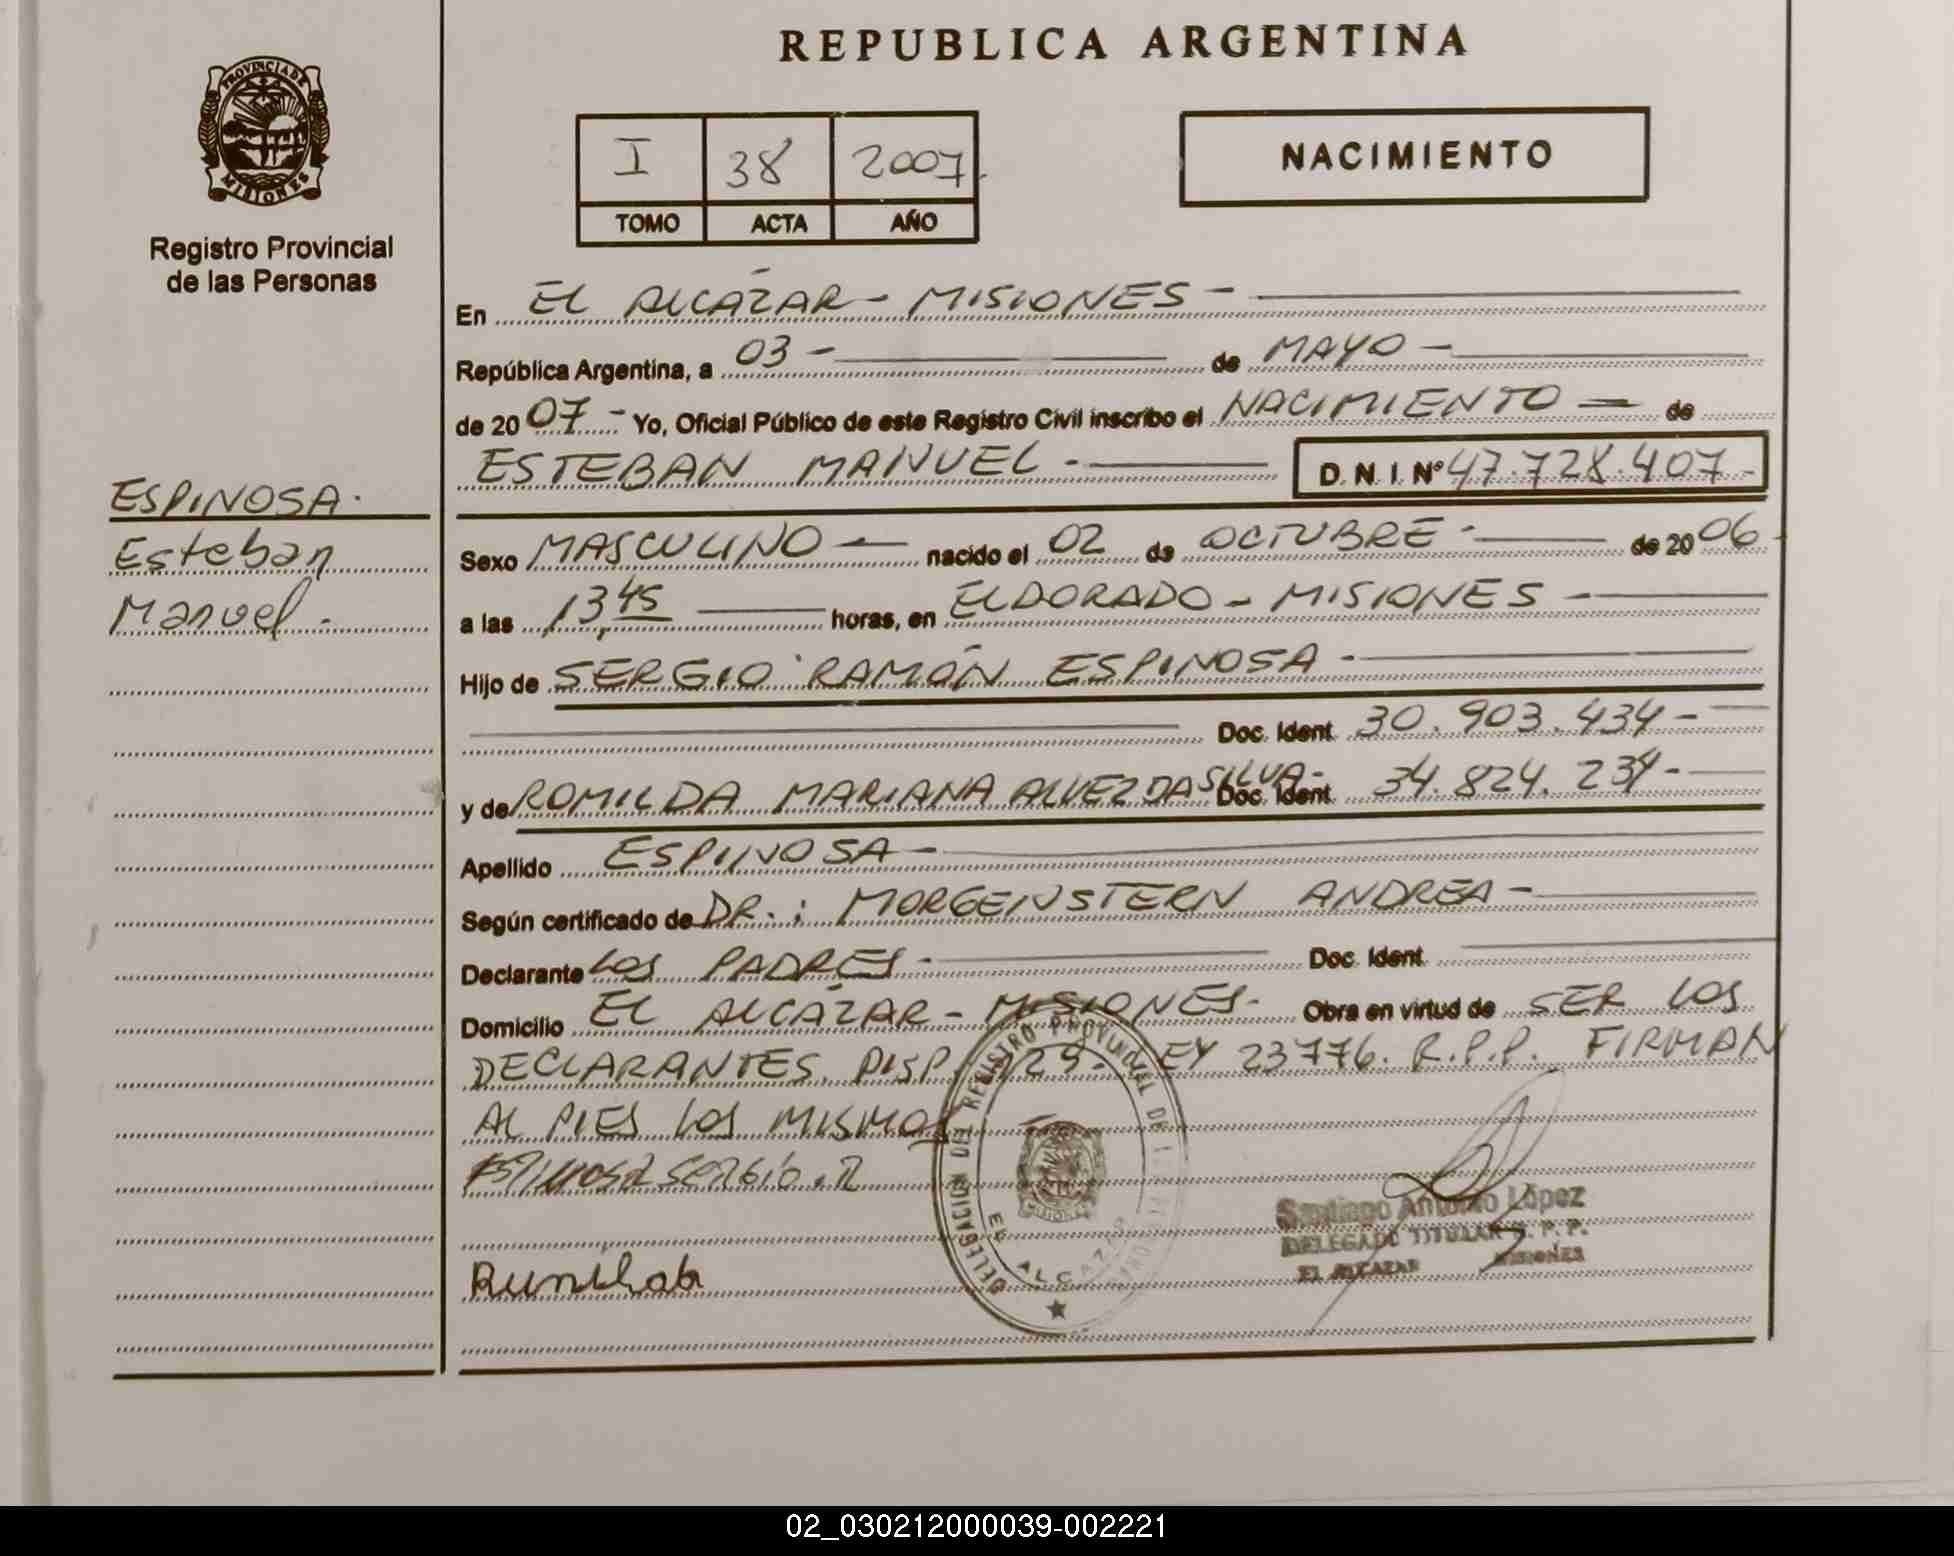 REPUBLICA ARGENTINA
PROVINCIA DE
MISIONES
Registro Provincial
de las Personas
I 38 2007
TOMO ACTA AÑO
NACIMIENTO
En EL ALCÁZAR - MISIONES -
República Argentina, a 03 - de MAYO -
de 20 07 - Yo, Oficial Público de este Registro Civil inscribo el NACIMIENTO = de
ESTEBAN MANUEL - D. N. I. Nº 47.728.407-
ESPINOSA.
Esteban
Manuel -
Sexo MASCULINO - nacido el 02 de OCTUBRE - de 20 06 -
a las 13,45 horas, en ELDORADO - MISIONES -
Hijo de SERGIO RAMÓN ESPINOSA -
Doc. Ident. 30.903.434 -
y de ROMILDA MARIANA ALVEZ DA SILVA - Doc. Ident. 34.824.234 -
Apellido ESPINOSA -
Según certificado de DR.: MORGENSTERN ANDREA -
Declarante LOS PADRES - Doc. Ident.
Domicilio EL ALCÁZAR - MISIONES - Obra en virtud de SER LOS
DECLARANTES. DISP. 129 - LEY 23776. R.P.P. FIRMAN
AL PIES LOS MISMOS
ESPINOSA SERGIO . R
DELEGACION DEL REGISTRO PROVINCIAL DE LAS PERSONAS
EL ALCAZAR
MISIONES
Santiago Antonio López
DELEGADO TITULAR R. P. P.
EL ALCAZAR MISIONES
02_030212000039-002221